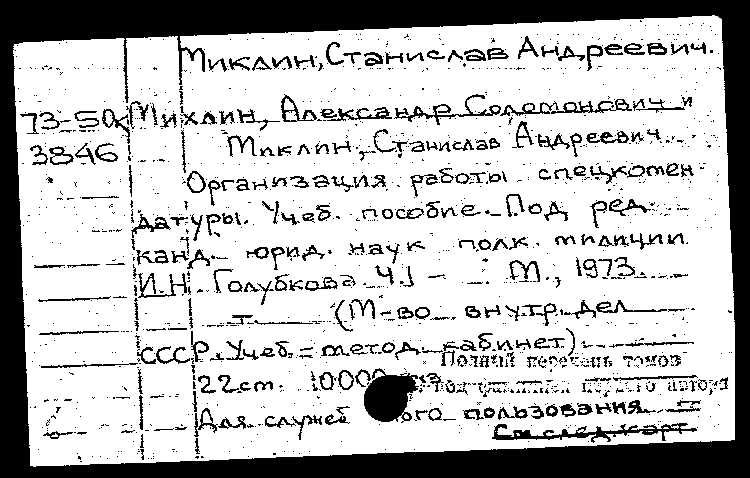 Миклин, Станислав Андреевич.
73-50к Михлин, Александр Соломонович и
3846 Миклин, Станислав Андреевич.
Организация работы спецкомен-
датуры. Учеб. пособие. Под ред.
канд. юрид. наук полк. милиции
И.Н. Голубкова Ч.1 - М., 1973.
т. (М-во внутр. дел
СССР. Учеб.-метод. кабинет)
Полный перечень томов
22см. 10000
под фамилией первого автора
Для служеб ого пользования
См. след. карт.